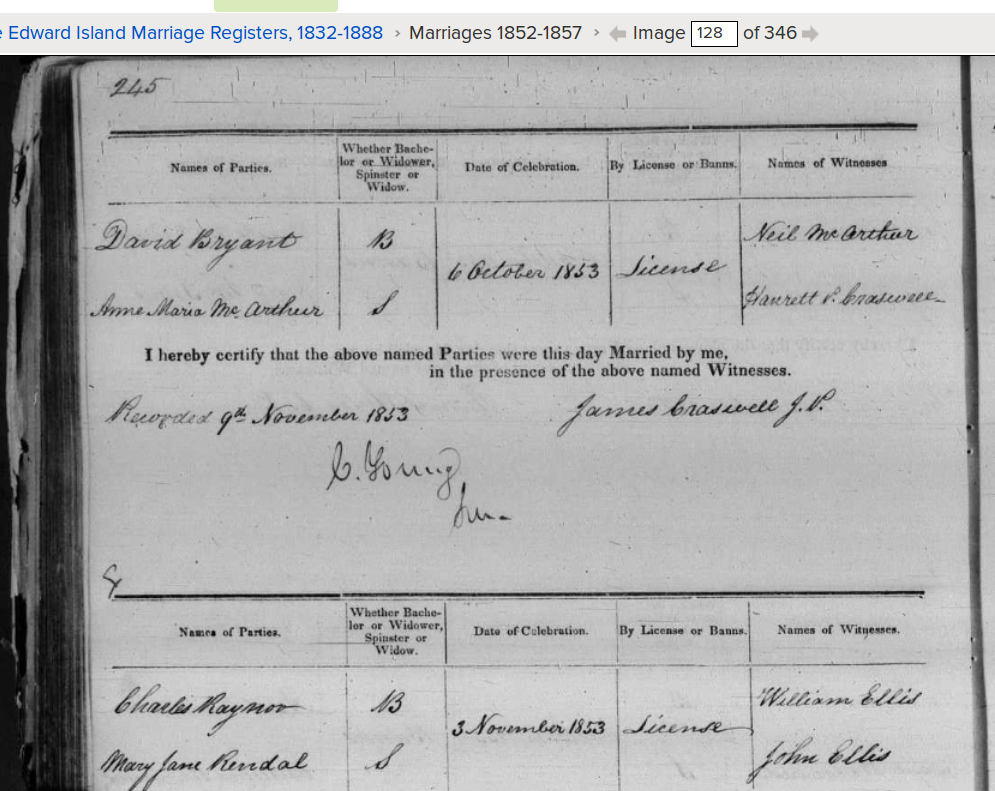 Edward Island Marriage Registers, 1832-1888 › Marriages 1852-1857 › Image 128 of 346
245
Names of Parties. Whether Bache- Date of Celebration. By License or Banns. Names of Witnesses
lor or Widower,
Spinster or
Widow.
David Bryant B Neil McArthur
6 October 1853 License
Anne Maria McArthur S P. Craswell
I hereby certify that the above named Parties were this day Married by me,
in the presence of the above named Witnesses.
Recorded 9th November 1853 James Craswell J.P.
C. Young
Names of Parties. Whether Bache- Date of Celebration. By License or Banns. Names of Witnesses.
lor or Widower,
Spinster or
Widow.
Charles Raynor B William Ellis
3 November 1853 License
Mary Jane Rendal S John Ellis